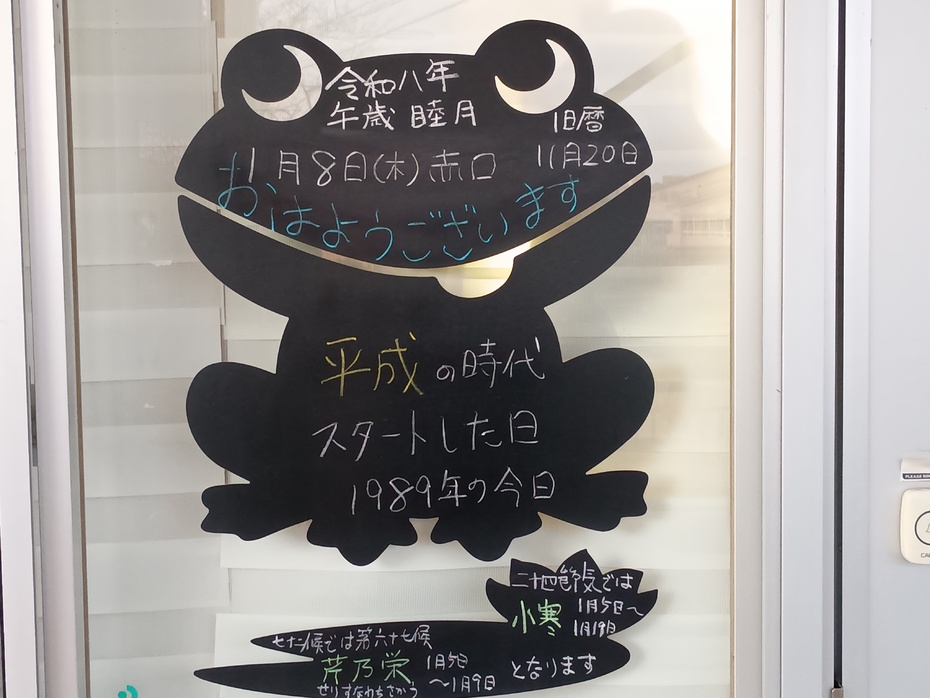 令和八年
午歳 睦月
旧暦
11月20日
1月8日(木)赤口
おはようございます
平成の時代
スタートした日
1989年の今日
二十四節気では
小寒 1月5日〜
1月19日
七十二候では第六十七候
芹乃栄 1月5日
〜1月9日
せりすなわちさかう
となります